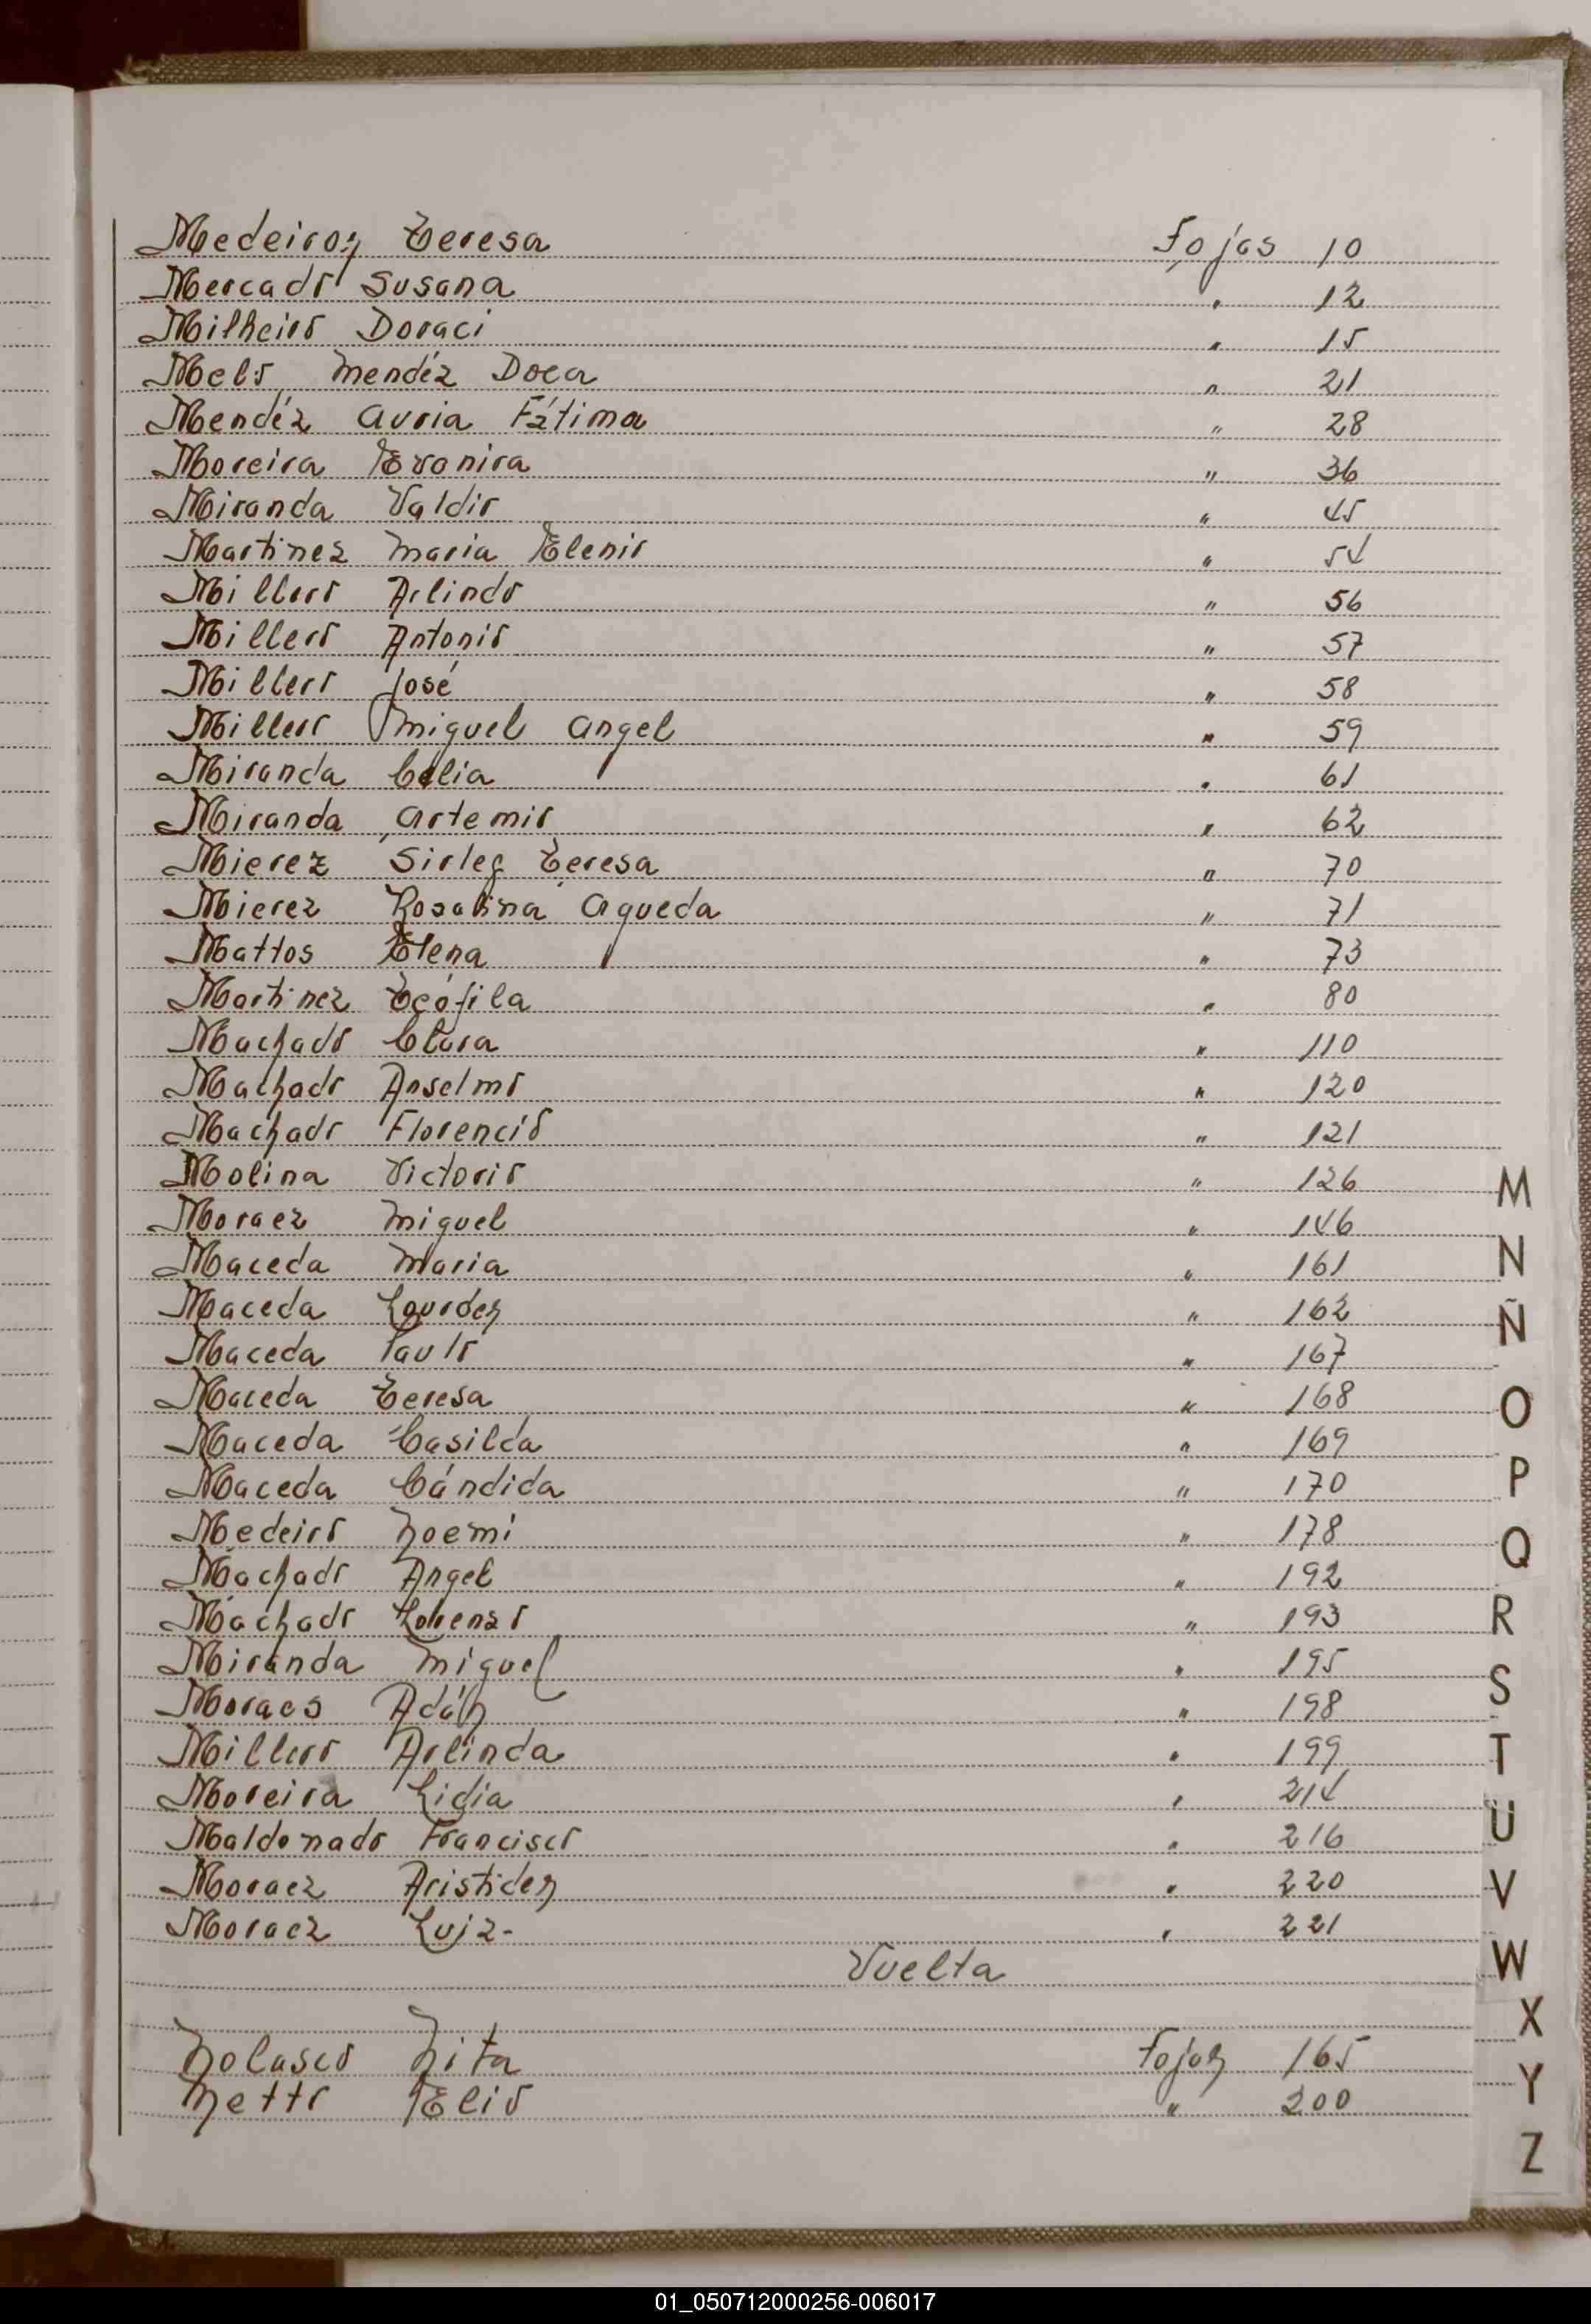 Medeiros Teresa Fojas 10
Mercado Susana " 12
Milheiro Doraci " 15
Melo Mendéz Doca " 21
Mendéz Auria Fátima " 28
Moreira Eronira " 36
Miranda Valdir " 45
Martinez Maria Elenir " 54
Millero Arlindo " 56
Millero Antonio " 57
Millero José " 58
Millero Miguel Angel " 59
Miranda Celia " 61
Miranda Artemio " 62
Mierez Sirley Teresa " 70
Mierez Rosalina Agueda " 71
Mattos Elena " 73
Martinez Teófila " 80
Machado Clara " 110
Machado Anselmo " 120
Machado Florencio " 121
Molina Victorio " 126
Moraez Miguel " 146
Maceda Maria " 161
Maceda Lourdes " 162
Maceda Paulo " 167
Maceda Teresa " 168
Maceda Casilda " 169
Maceda Cándida " 170
Medeiro Noemi " 178
Machado Angel " 192
Machado Lorenzo " 193
Miranda Miguel " 195
Moraes Adán " 198
Millero Arlinda " 199
Moreira Lidia " 214
Maldonado Francisco " 216
Moraez Aristides " 220
Moraez Luiz- " 221
Vuelta
Nolasco Nita Fojas 165
Netto Elio " 200
M
N
Ñ
O
P
Q
R
S
T
U
V
W
X
Y
Z
01_050712000256-006017